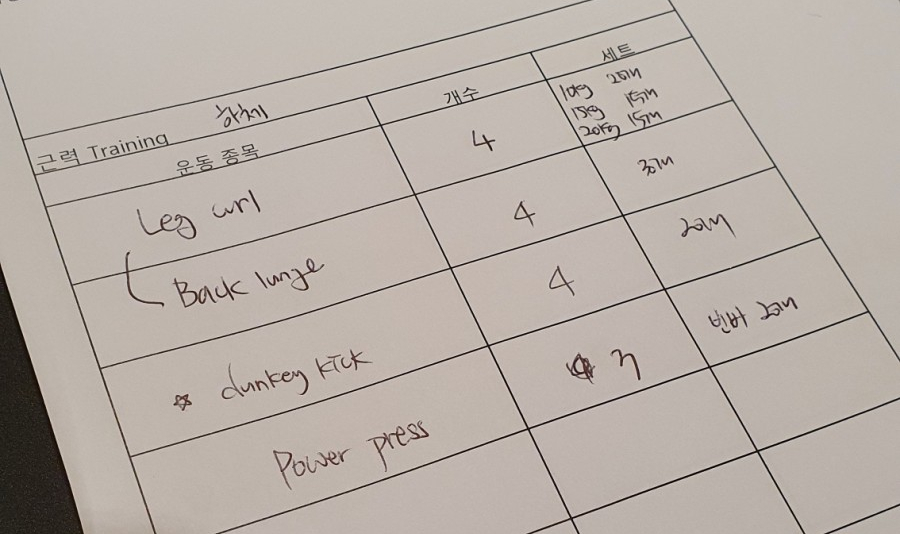 근력 Training 하체
운동 종목 개수 세트
Leg curl 4 10kg 20개
15kg 15개
20kg 15개
Back lunge 4 30개
☆ dunkey kick 4 20개
Power press 3 빈바 20개